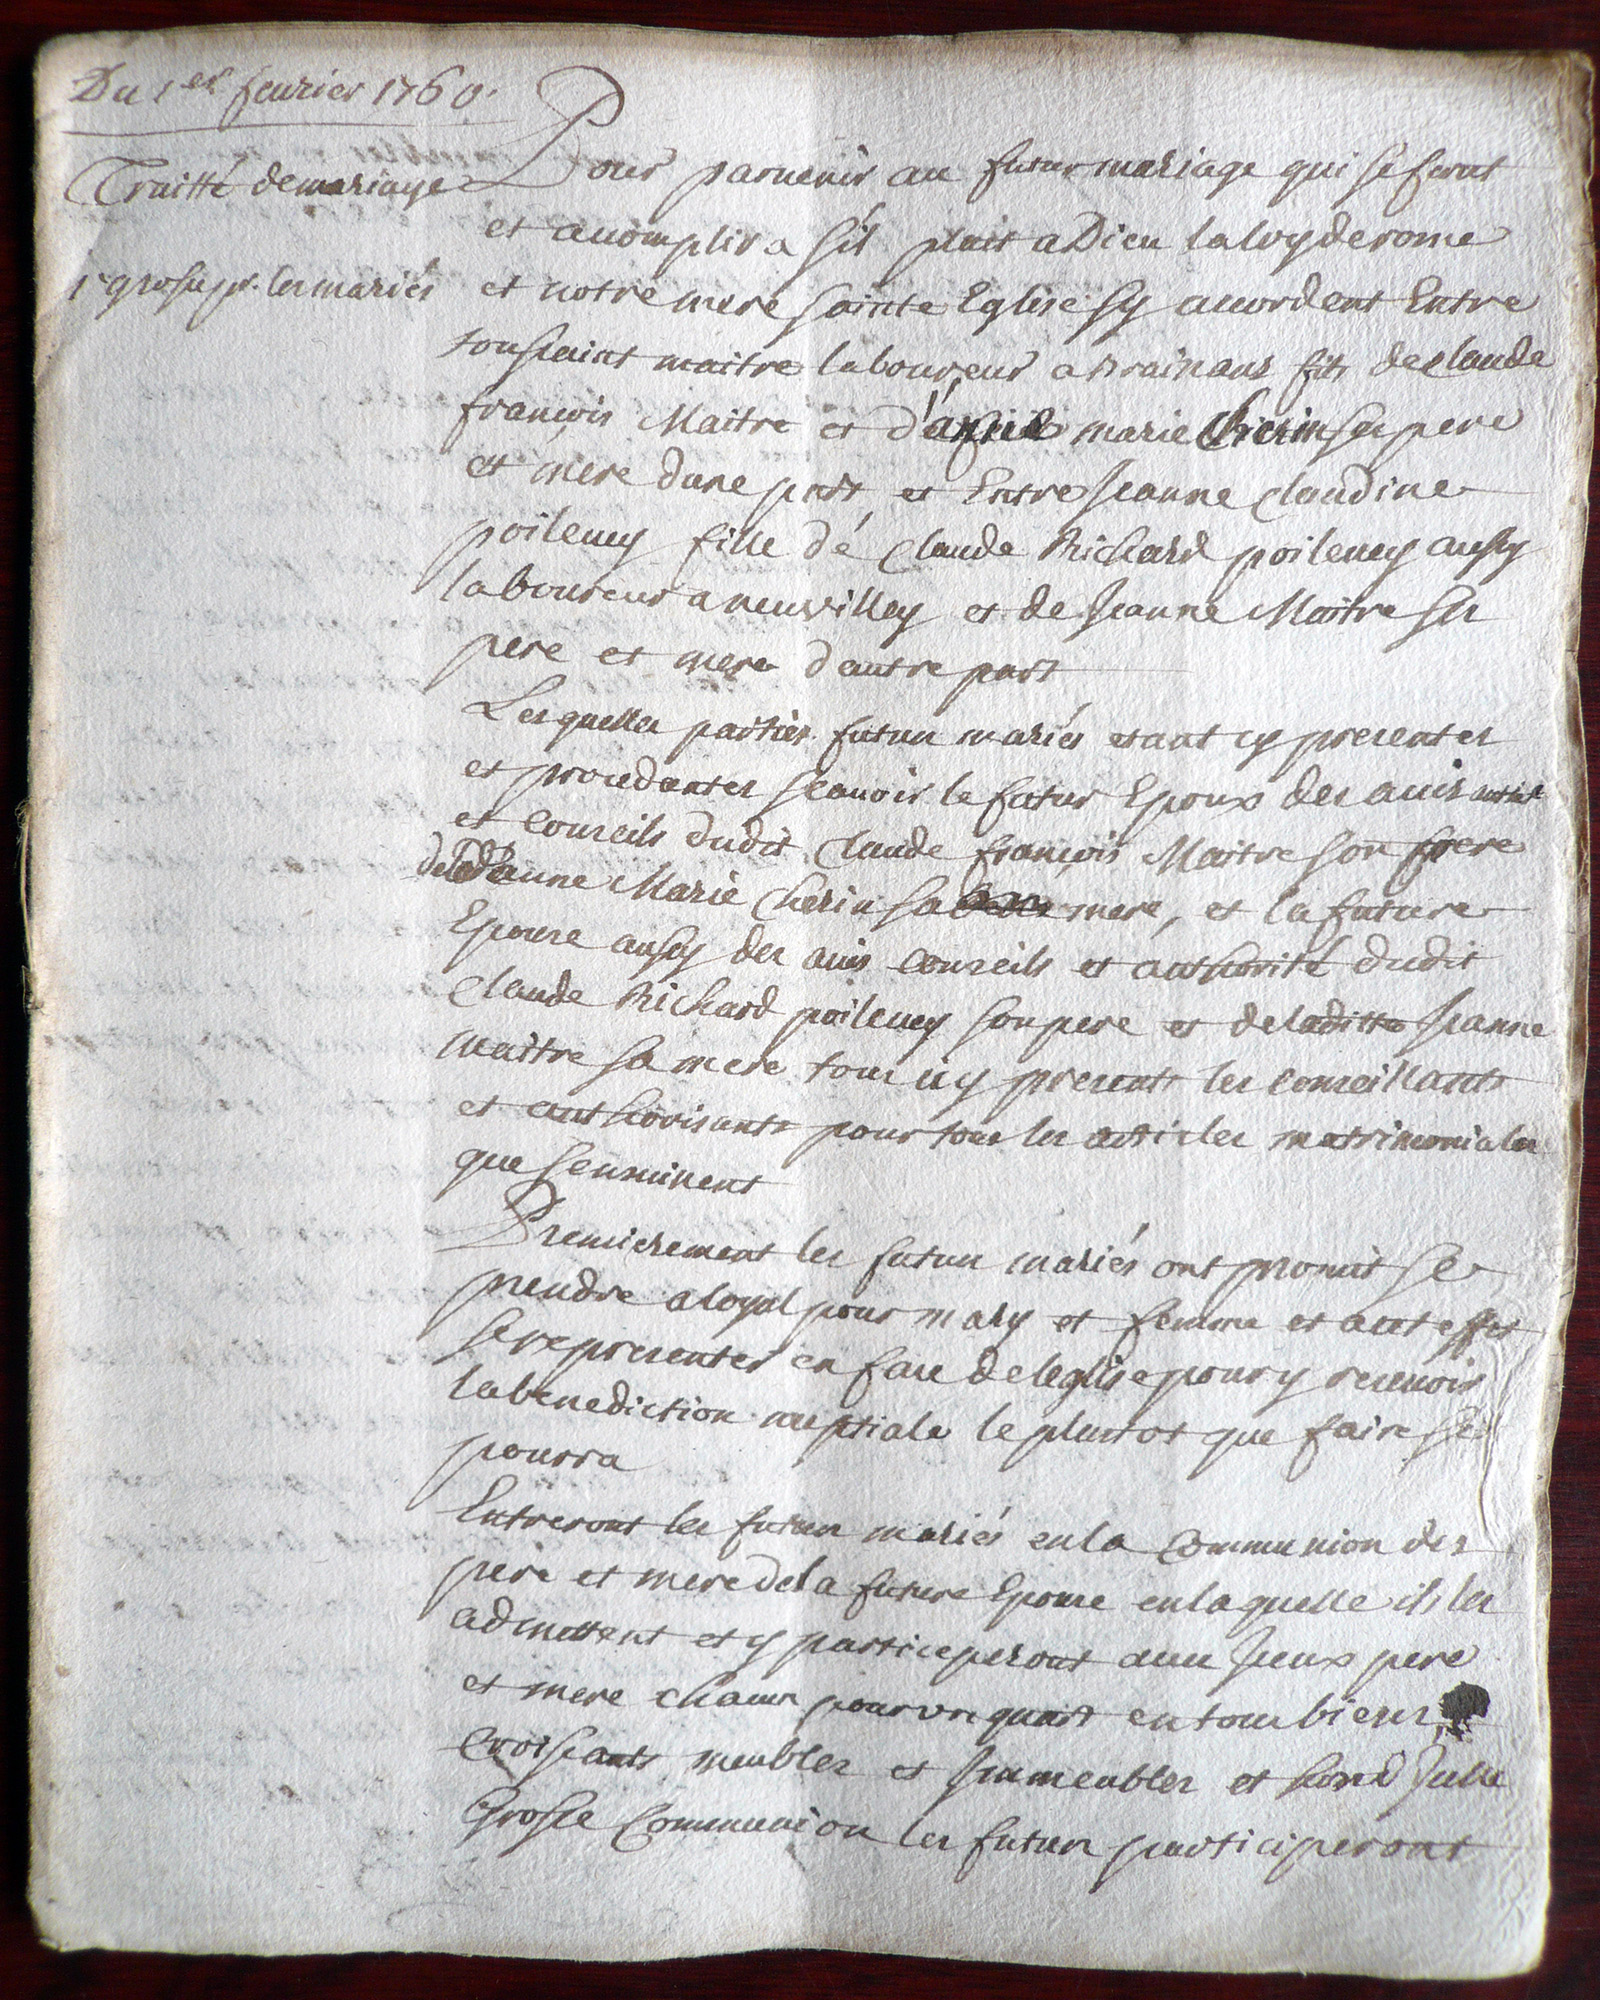 Du 1er feurier 1760.
Traitté de mariage
1e grosse pr. les mariés
Pour paruenir au futur mariage qui se ferat
et acomplira s'il plait a Dieu la loy de rome
et notre mere sainte Eglise sy accordent Entre
toussaint maitre laboureur a trainans fils de claude
françois Maitre et d'anne marie Cherin ses pere
et mere dune part et Entre Jeanne Claudine
poileuey fille dé Claude Richard poileuey aussy
laboureur a neuvilley et de Jeanne Maitre ses
pere et mere d'autre part
Lesquelles parties futurs mariés etant cy presentes
et procedantes scauoir le futur Epoux des auis
et conseils dudit Claude françois Maitre son pere
de Jeanne Marie Cherin sa mere, et la future
Epouse aussy des auis conseils et authorité dudit
Claude Richard poileuey son pere et de laditte Jeanne
maitre sa mere tous icy presents les conseillants
et authorisants pour tous les articles matrimoniales
que sensuivent
Premierement les futurs mariés ont promit se
prendre a loyal pour mary et femme et a cet effet
se representer en face de leglise pour y receuoir
la benediction nuptiale le plustot que faire se
pourra
Entreront les futurs mariés en la Communion des
pere et mere de la future Epouse en la quelle ils les
admettent et y participeront auec Iceux pere
et mere chacun pour un quart en tous biens,
croissants meubles et Immeubles et hord Icelle
Grosse Communion les futurs participeront